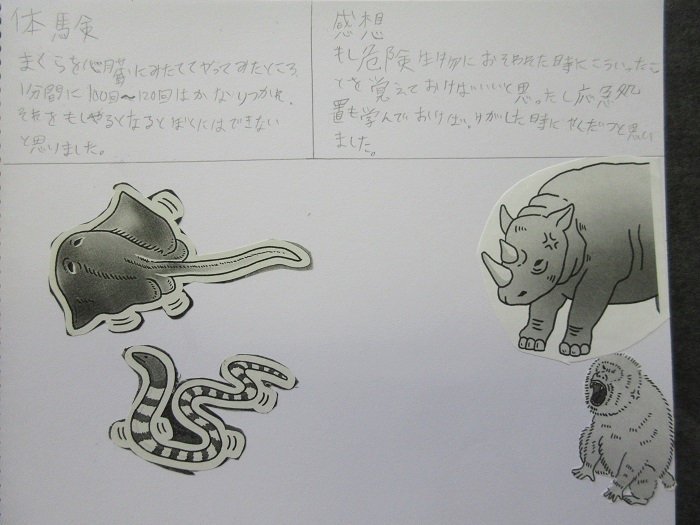 体験
まくらを心臓にみたててやってみたところ、
1分間に100回〜120回はかなりつかれ、
それをもしやるとなるとぼくにはできない
と思いました。
感想
もし危険生物におそわれた時にこういったこ
とを覚えておけばいいと思ったし応急処
置も学んでおけば、けがした時にやくだつと思い
ました。